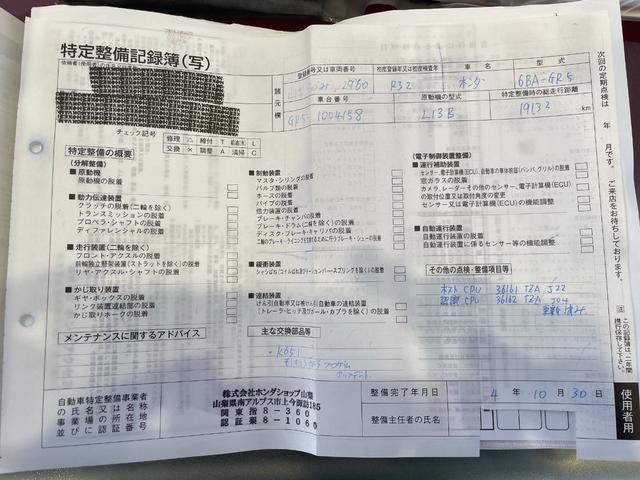 特定整備記録簿(写)
登録番号又は車両番号
初度登録年又は初度検査年
車 名
型 式
諸元欄
2960
R32
ホンダ
6BA-GR5
車台番号
原動機の型式
特定整備時の総走行距離
GR5-1004158
L13B
19132 km
チェック記号
修理 △ 締付 T 給油(水) L
交換 × 調整 A 清掃 C
特定整備の概要
(分解整備)
■原動機
原動機の脱着
■動力伝達装置
クラッチの脱着(二輪を除く)
トランスミッションの脱着
プロペラ・シャフトの脱着
ディファレンシャルの脱着
■走行装置(二輪を除く)
フロント・アクスルの脱着
前輪独立懸架装置(ストラットを除く)の脱着
リヤ・アクスル・シャフトの脱着
■かじ取り装置
ギヤ・ボックスの脱着
リンク装置連結部の脱着
かじ取りホークの脱着
■制動装置
マスタ・シリンダの脱着
バルブ類の脱着
ホースの脱着
パイプの脱着
倍力装置の脱着
ブレーキ・チャンバの脱着
ブレーキ・ドラム(二輪を除く)の脱着
ディスク・ブレーキ・キャリパの脱着
二輪のブレーキ・ライニングを交換するために行うブレーキ・シューの脱着
■緩衝装置
シャシばね(コイルばね及びトーションバー・スプリングを除く)の脱着
■連結装置
けん引自動車又は被けん引自動車の連結装置
(トレーラ・ヒッチ及びボール・カプラを除く)の脱着
(電子制御装置整備)
■運行補助装置
センサー、電子計算機(ECU)、自動車の車体前部(バンパ、グリル)の脱着
窓ガラスの脱着
カメラ、レーダーその他のセンサー、電子計算機(ECU)
の取付位置又は取付角度の変更
センサー又は電子計算機(ECU)の機能調整
■自動運行装置
自動運行装置の脱着
自動運行装置に係るセンサー等の機能調整
その他の点検・整備項目等
ホスト CPU 36161 TZA J22
認識 CPU 36162 TZA J04
メンテナンスに関するアドバイス
主な交換部品等
プログラム
アップデート
自動車特定整備事業者
の氏名又は名称
事業場の所在地
並びに認証番号
株式会社ホンダショップ山梨
山梨県南アルプス市上今諏訪185
関東指8-360
認証梨8-1060
整備完了年月日
4 年 10 月 30 日
整備主任者の氏名
次回の定期点検は 年 月です。ご来店をお待ちしております。
この記録簿は、二年間
携行保存して下さい。
使用者用